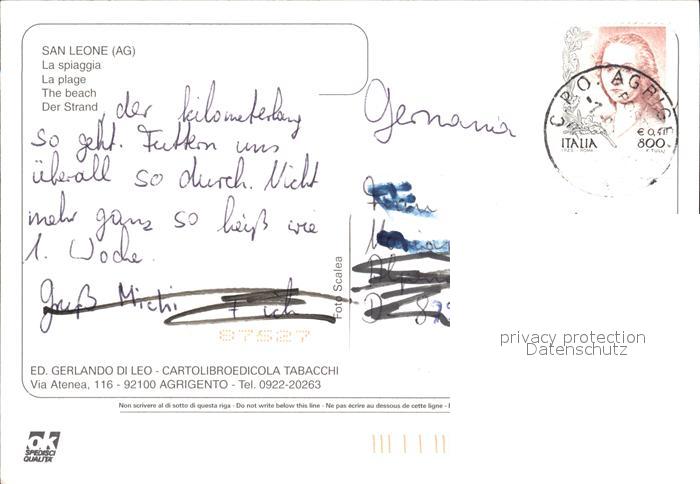 SAN LEONE (AG)
La spiaggia
La plage
The beach
Der Strand
, der kilometerlang
so geht. Futtern uns
überall so durch. Nicht
mehr ganz so heiß wie
1. Woche.
Gruß Michi
Germania
C.P.O. AGRIG
ITALIA
€ 0,41
800
Foto Scalea
87527
privacy protection
Datenschutz
ED. GERLANDO DI LEO - CARTOLIBROEDICOLA TABACCHI
Via Atenea, 116 - 92100 AGRIGENTO - Tel. 0922-20263
Non scrivere al di sotto di questa riga - Do not write below this line - Ne pas écrire au dessous de cette ligne -
ok
SPEDISCI
QUALITÀ